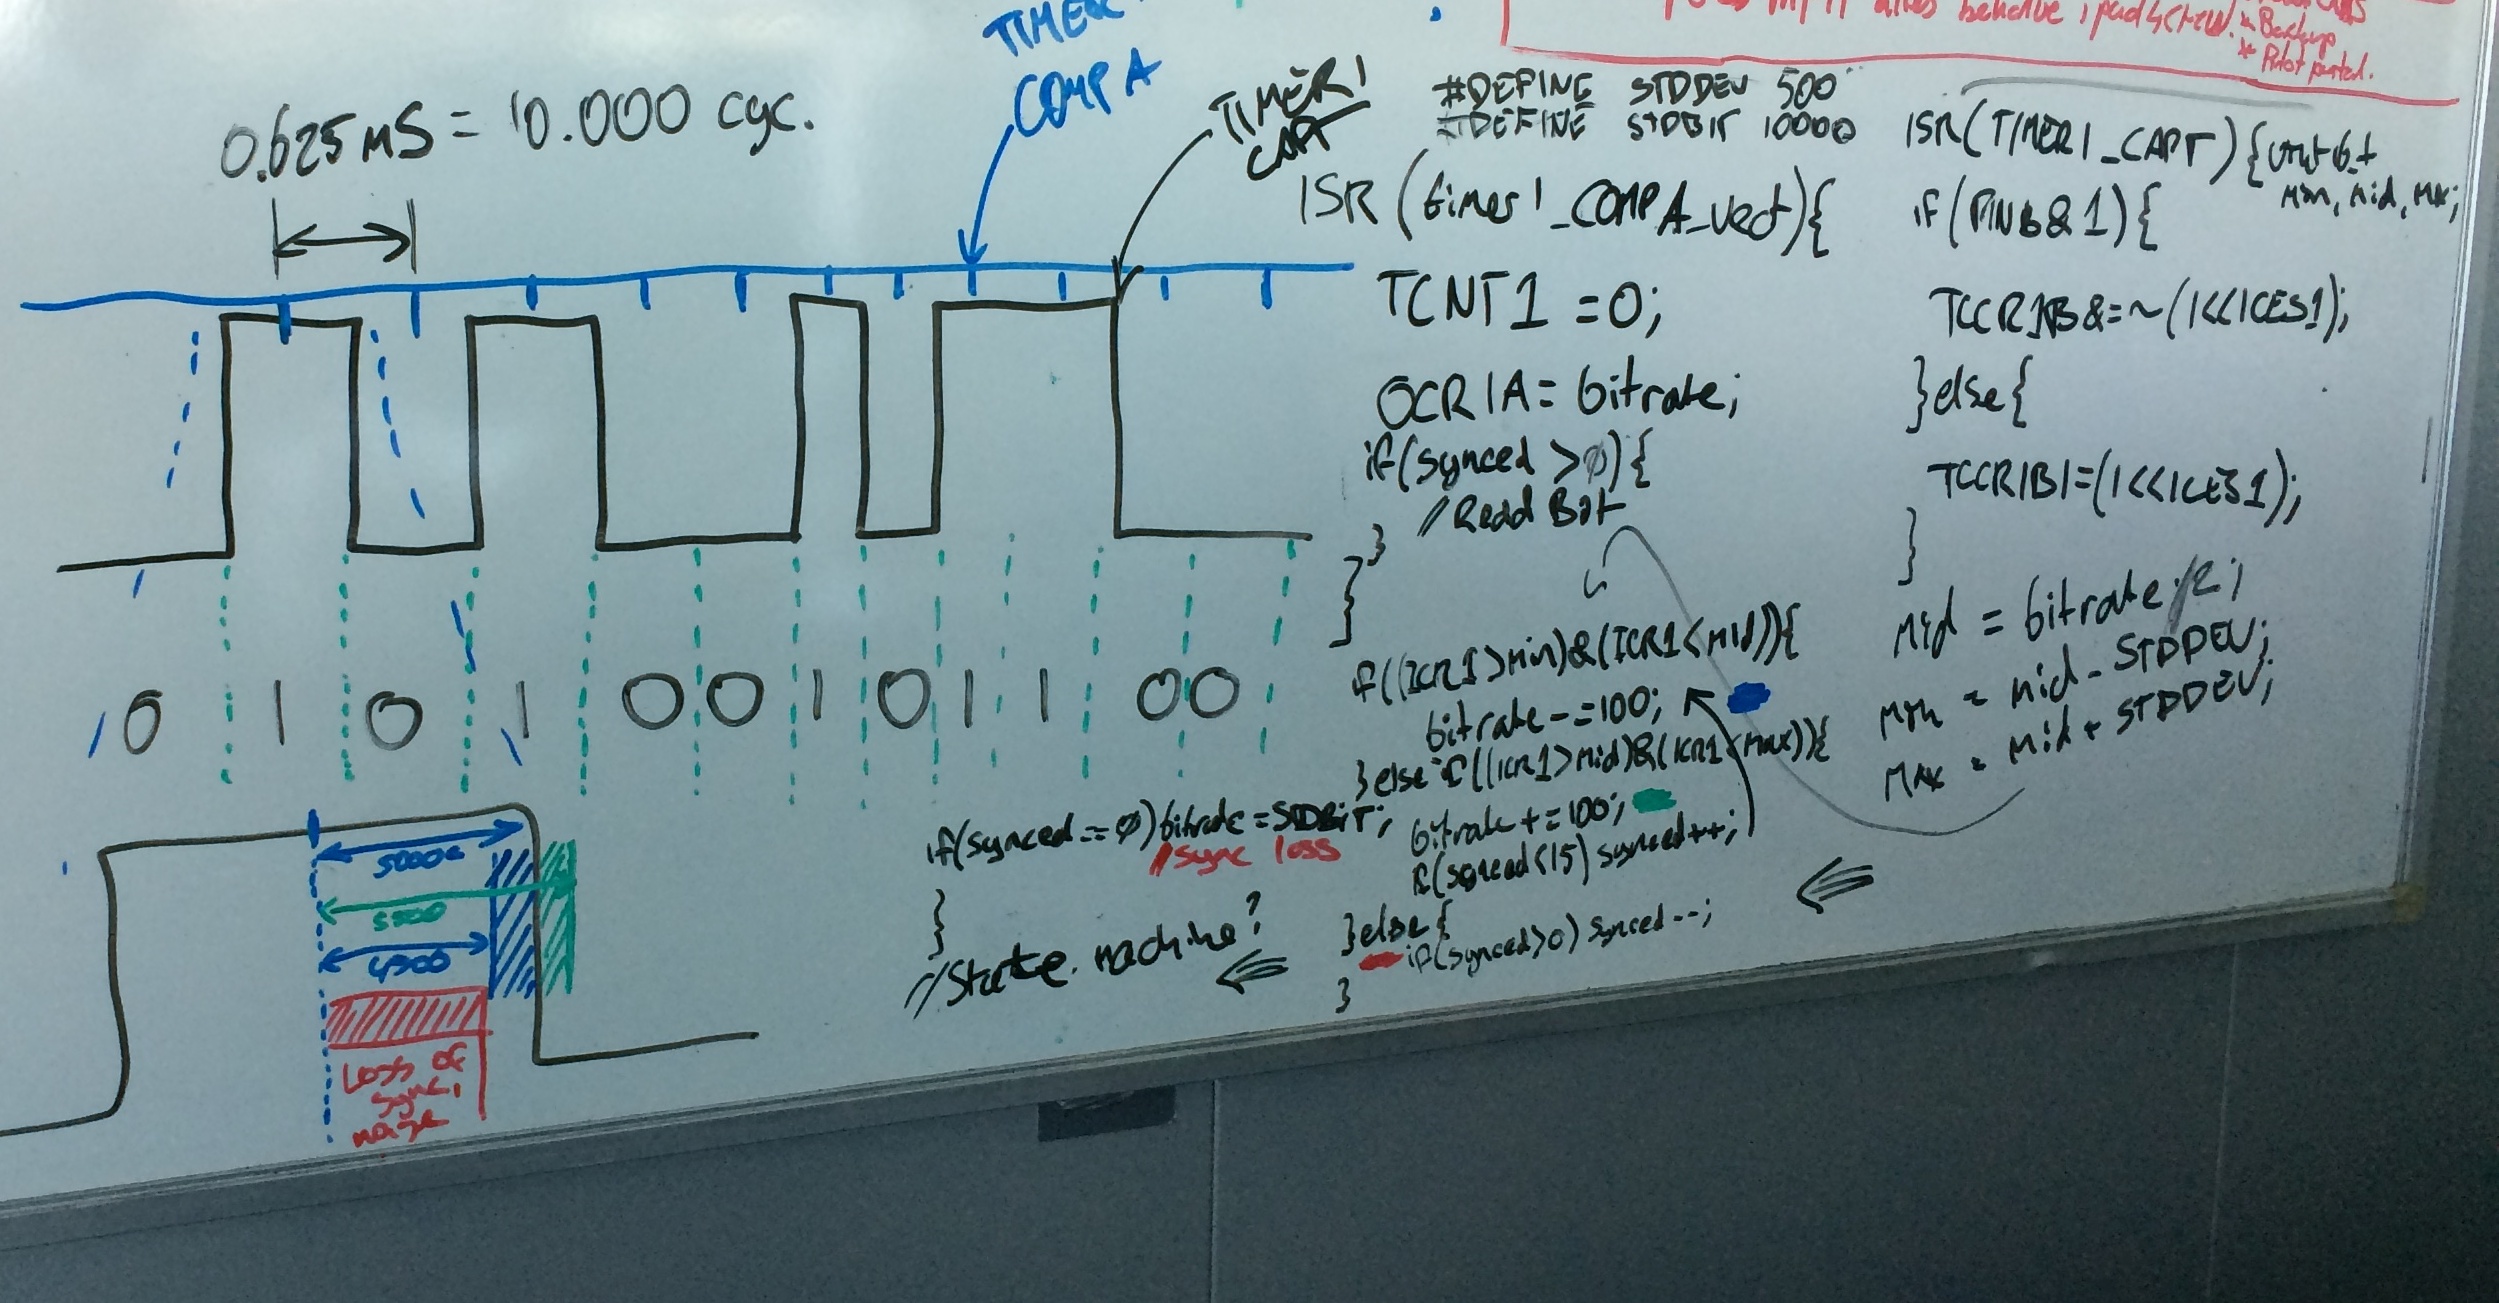 behave
* Backup
TIMER
COMP A
TIMER1
CAPT
0.625mS = 10.000 cyc.
#DEFINE STDDEV 500
#DEFINE STDBIT 10000
ISR (timer1_COMPA_vect){
TCNT1 = 0;
OCR1A = bitrate;
if(synced >0){
//Read Bit
}
}
ISR(TIMER1_CAPT){uint16_t
min, mid, max;
if(PINB&1){
TCCR1B&=~(1<<ICES1);
}else{
TCCR1B|=(1<<ICES1);
}
mid = bitrate/2;
min = mid - STDDEV;
max = mid + STDDEV;
if((ICR1>min)&(ICR1<mid)){
bitrate-=100;
}else if((ICR1>mid)&(ICR1<max)){
bitrate+=100;
if(synced<15) synced++;
}else{
if(synced>0) synced--;
}
if(synced==0)bitrate=STDBIT;
//sync loss
}
//State machine?
0 1 0 1 0 0 1 0 1 1 0 0
5000
5500
4500
Loss of
sync,